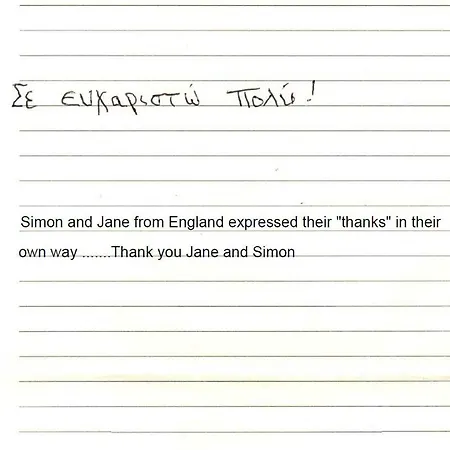 Σε ευχαριστώ πολύ!
Simon and Jane from England expressed their "thanks" in their
own way .......Thank you Jane and Simon